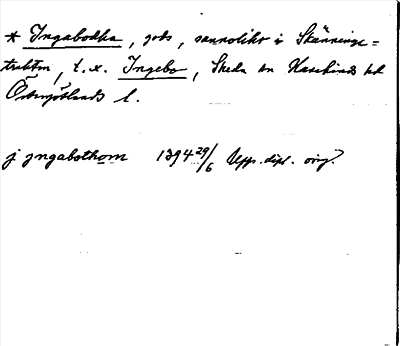 * Ingabodha, gods, sannolikt i Skänninge=
trakten, t.ex. Ingebo, Skeda sn Hanekinds hd
Östergötlands l.
j jngabothom 1394 29/6 Upps. dipl. orig.